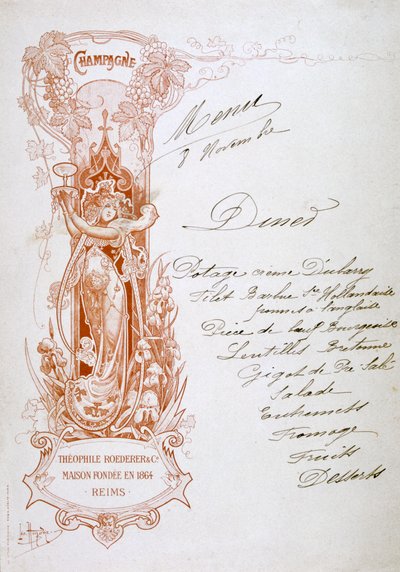 CHAMPAGNE
Menu
8 Novembre
Diner
Potage crème Dubarry
Filet Barbue Sce Hollandaise
pommes à l'anglaise
Pièce de boeuf Bourgeoise
Lentilles Bretonne
Gigot de Pré Salé
Salade
Entremets
Fromage
Fruits
Desserts
THÉOPHILE ROEDERER & Co
MAISON FONDÉE EN 1864
· REIMS ·